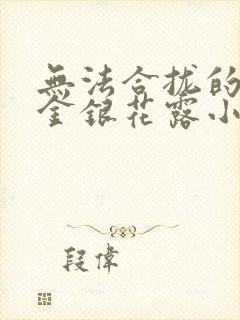 無法合拢的
金銀花露小
段偉